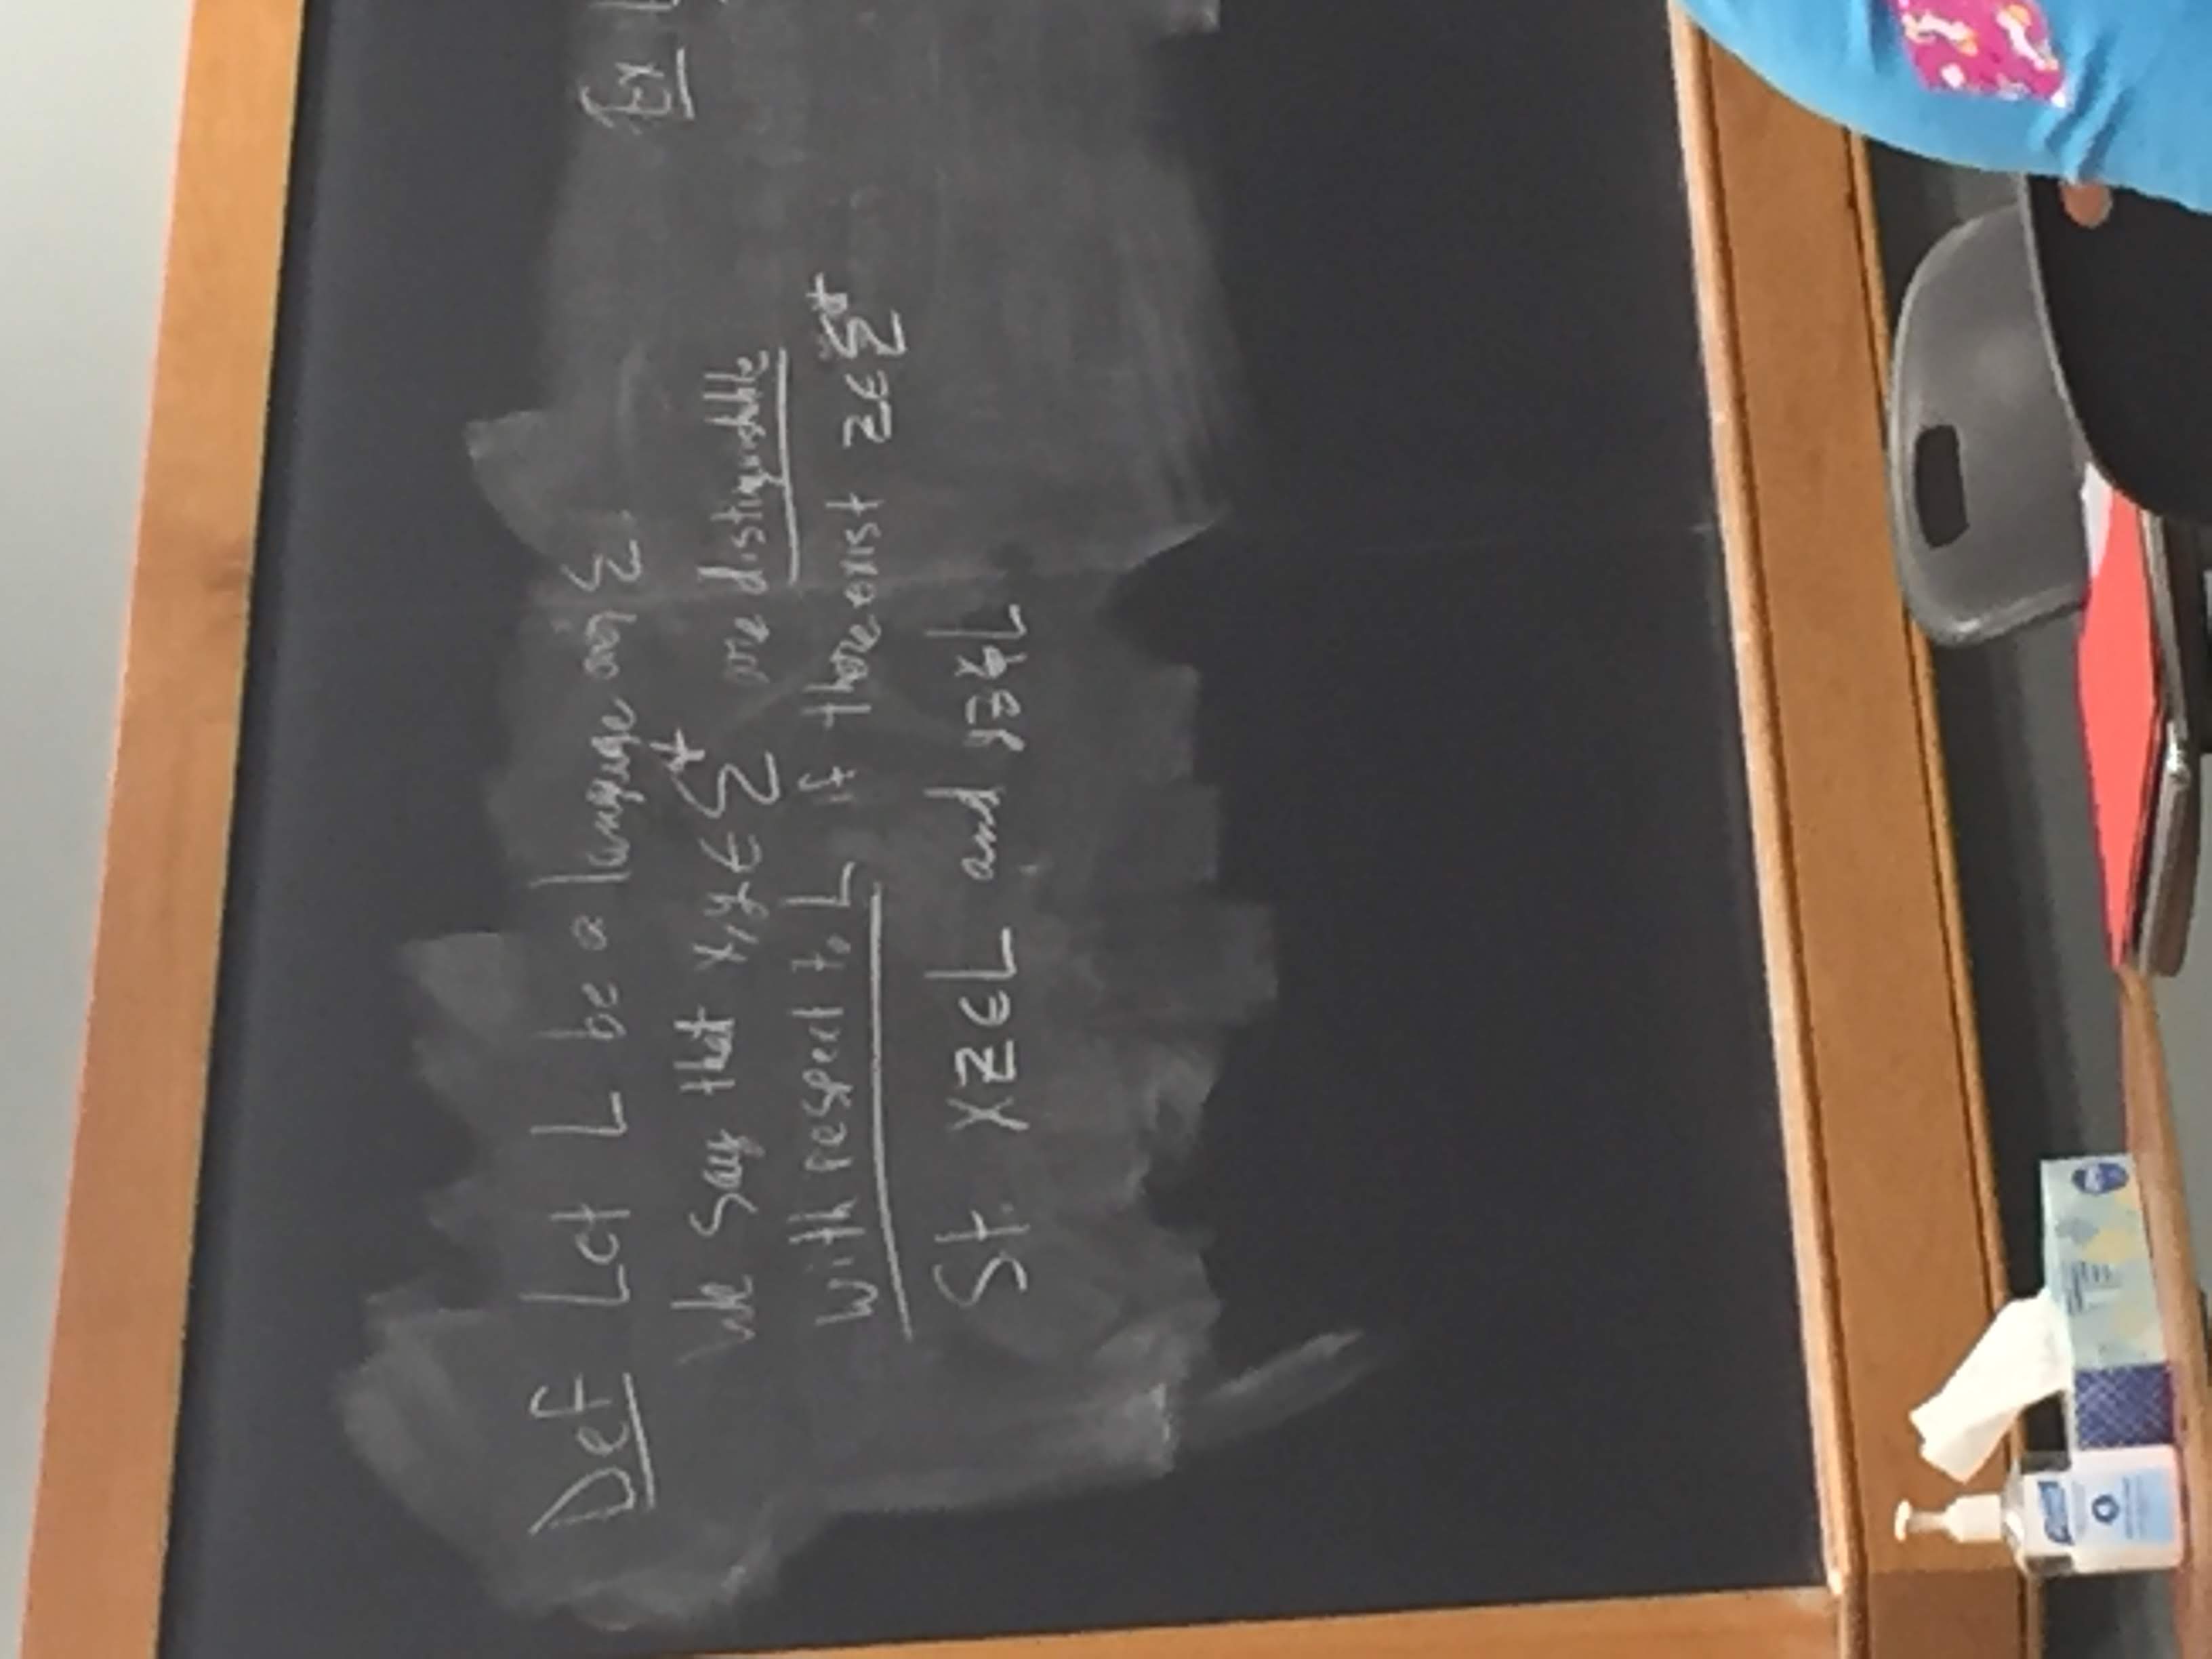 Def Let L be a language over Σ.
We say that x,y ∈ Σ* are distinguishable
with respect to L if there exist z ∈ Σ*
St. xz ∈ L and yz ∉ L
Ex